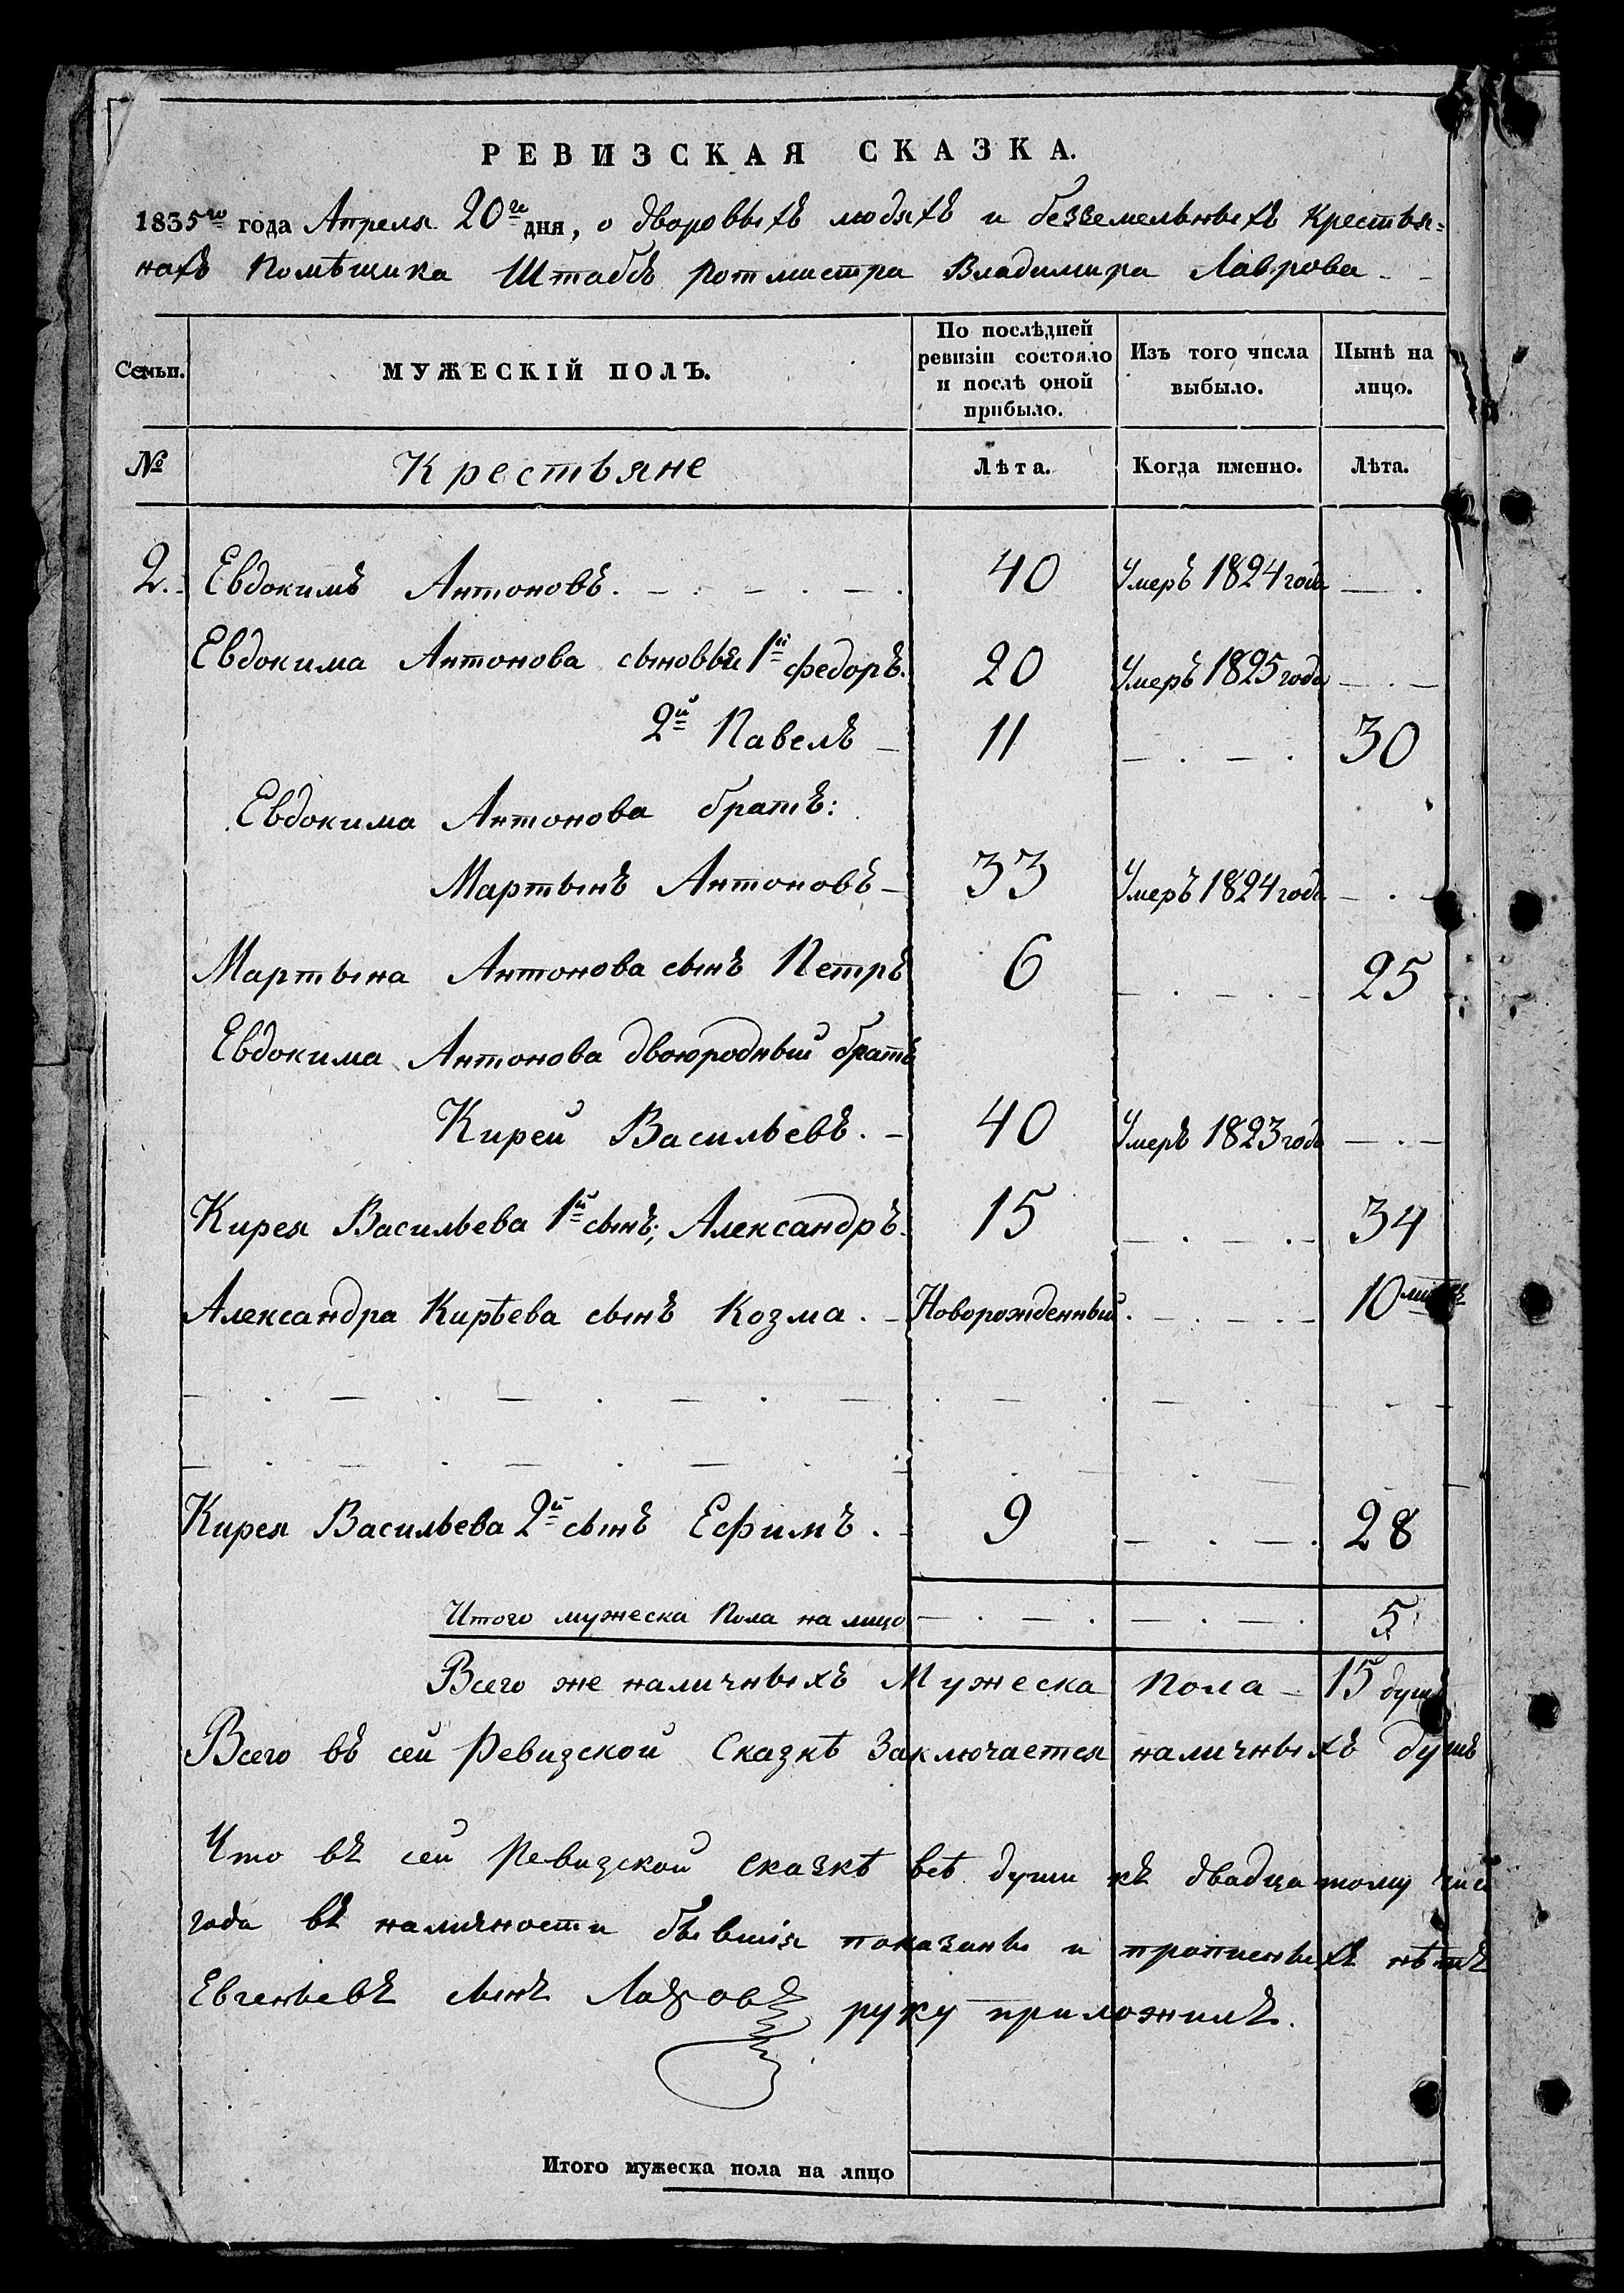 РЕВИЗСКАЯ СКАЗКА.
1835го года Апреля 20го дня, о дворовыхъ людяхъ и безземельныхъ крестья=
нахъ Помѣщика Штабсъ ротмистра Владимира Лаврова
Семьи. МУЖЕСКІЙ ПОЛЪ. По послѣдней ревизіи состояло и послѣ оной прибыло. Изъ того числа выбыло. Нынѣ на лицо.
№ Крестьяне Лѣта. Когда именно. Лѣта.
2. Евдокимъ Антоновъ. 40 Умеръ 1824 года
Евдокима Антонова сыновья 1й Федоръ. 20 Умеръ 1825 года
2й Павелъ 11 30
Евдокима Антонова братъ:
Мартынъ Антоновъ 33 Умеръ 1824 года
Мартына Антонова сынъ Петръ 6 25
Евдокима Антонова двоюродный братъ
Кирей Васильевъ. 40 Умеръ 1823 года
Кирея Васильева 1й сынъ; Александръ. 15 34
Александра Кирѣева сынъ Козма. Новорожденный. 10
Кирея Васильева 2й сынъ Ефимъ. 9 28
Итого мужеска пола на лицо 5
Всего же наличныхъ Мужеска пола 15 душъ
Всего въ сей Ревизской Сказкѣ Заключается наличныхъ душъ
Что въ сей Ревизской сказкѣ всѣ души къ двадцатому
года въ наличности бывшія показаны и прописныхъ нѣтъ
Евгеньевъ сынъ Лавровъ руку приложилъ.
Итого мужеска пола на лицо